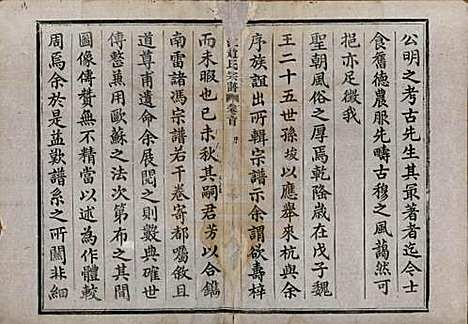 公明之考古先生其最著者迄今士
食舊德農服先疇古穆之風藹然可
挹亦足徵我
聖朝風俗之厚焉乾隆歲在戊子魏
王二十五世孫埈以應舉來杭與余
序族誼出所輯宗譜示余謂欲壽梓
氏宗譜 卷首
而未暇也己未秋其嗣君芳以合鐫
南雷諸馮宗譜若干卷寄都囑敘且
道尊甫遺命余展閱之則數典確世
傳整萬用歐蘇之法次第布之其間
圖像傳贊無不精當以述為作體較
周焉余於是益歎譜系之所關非細